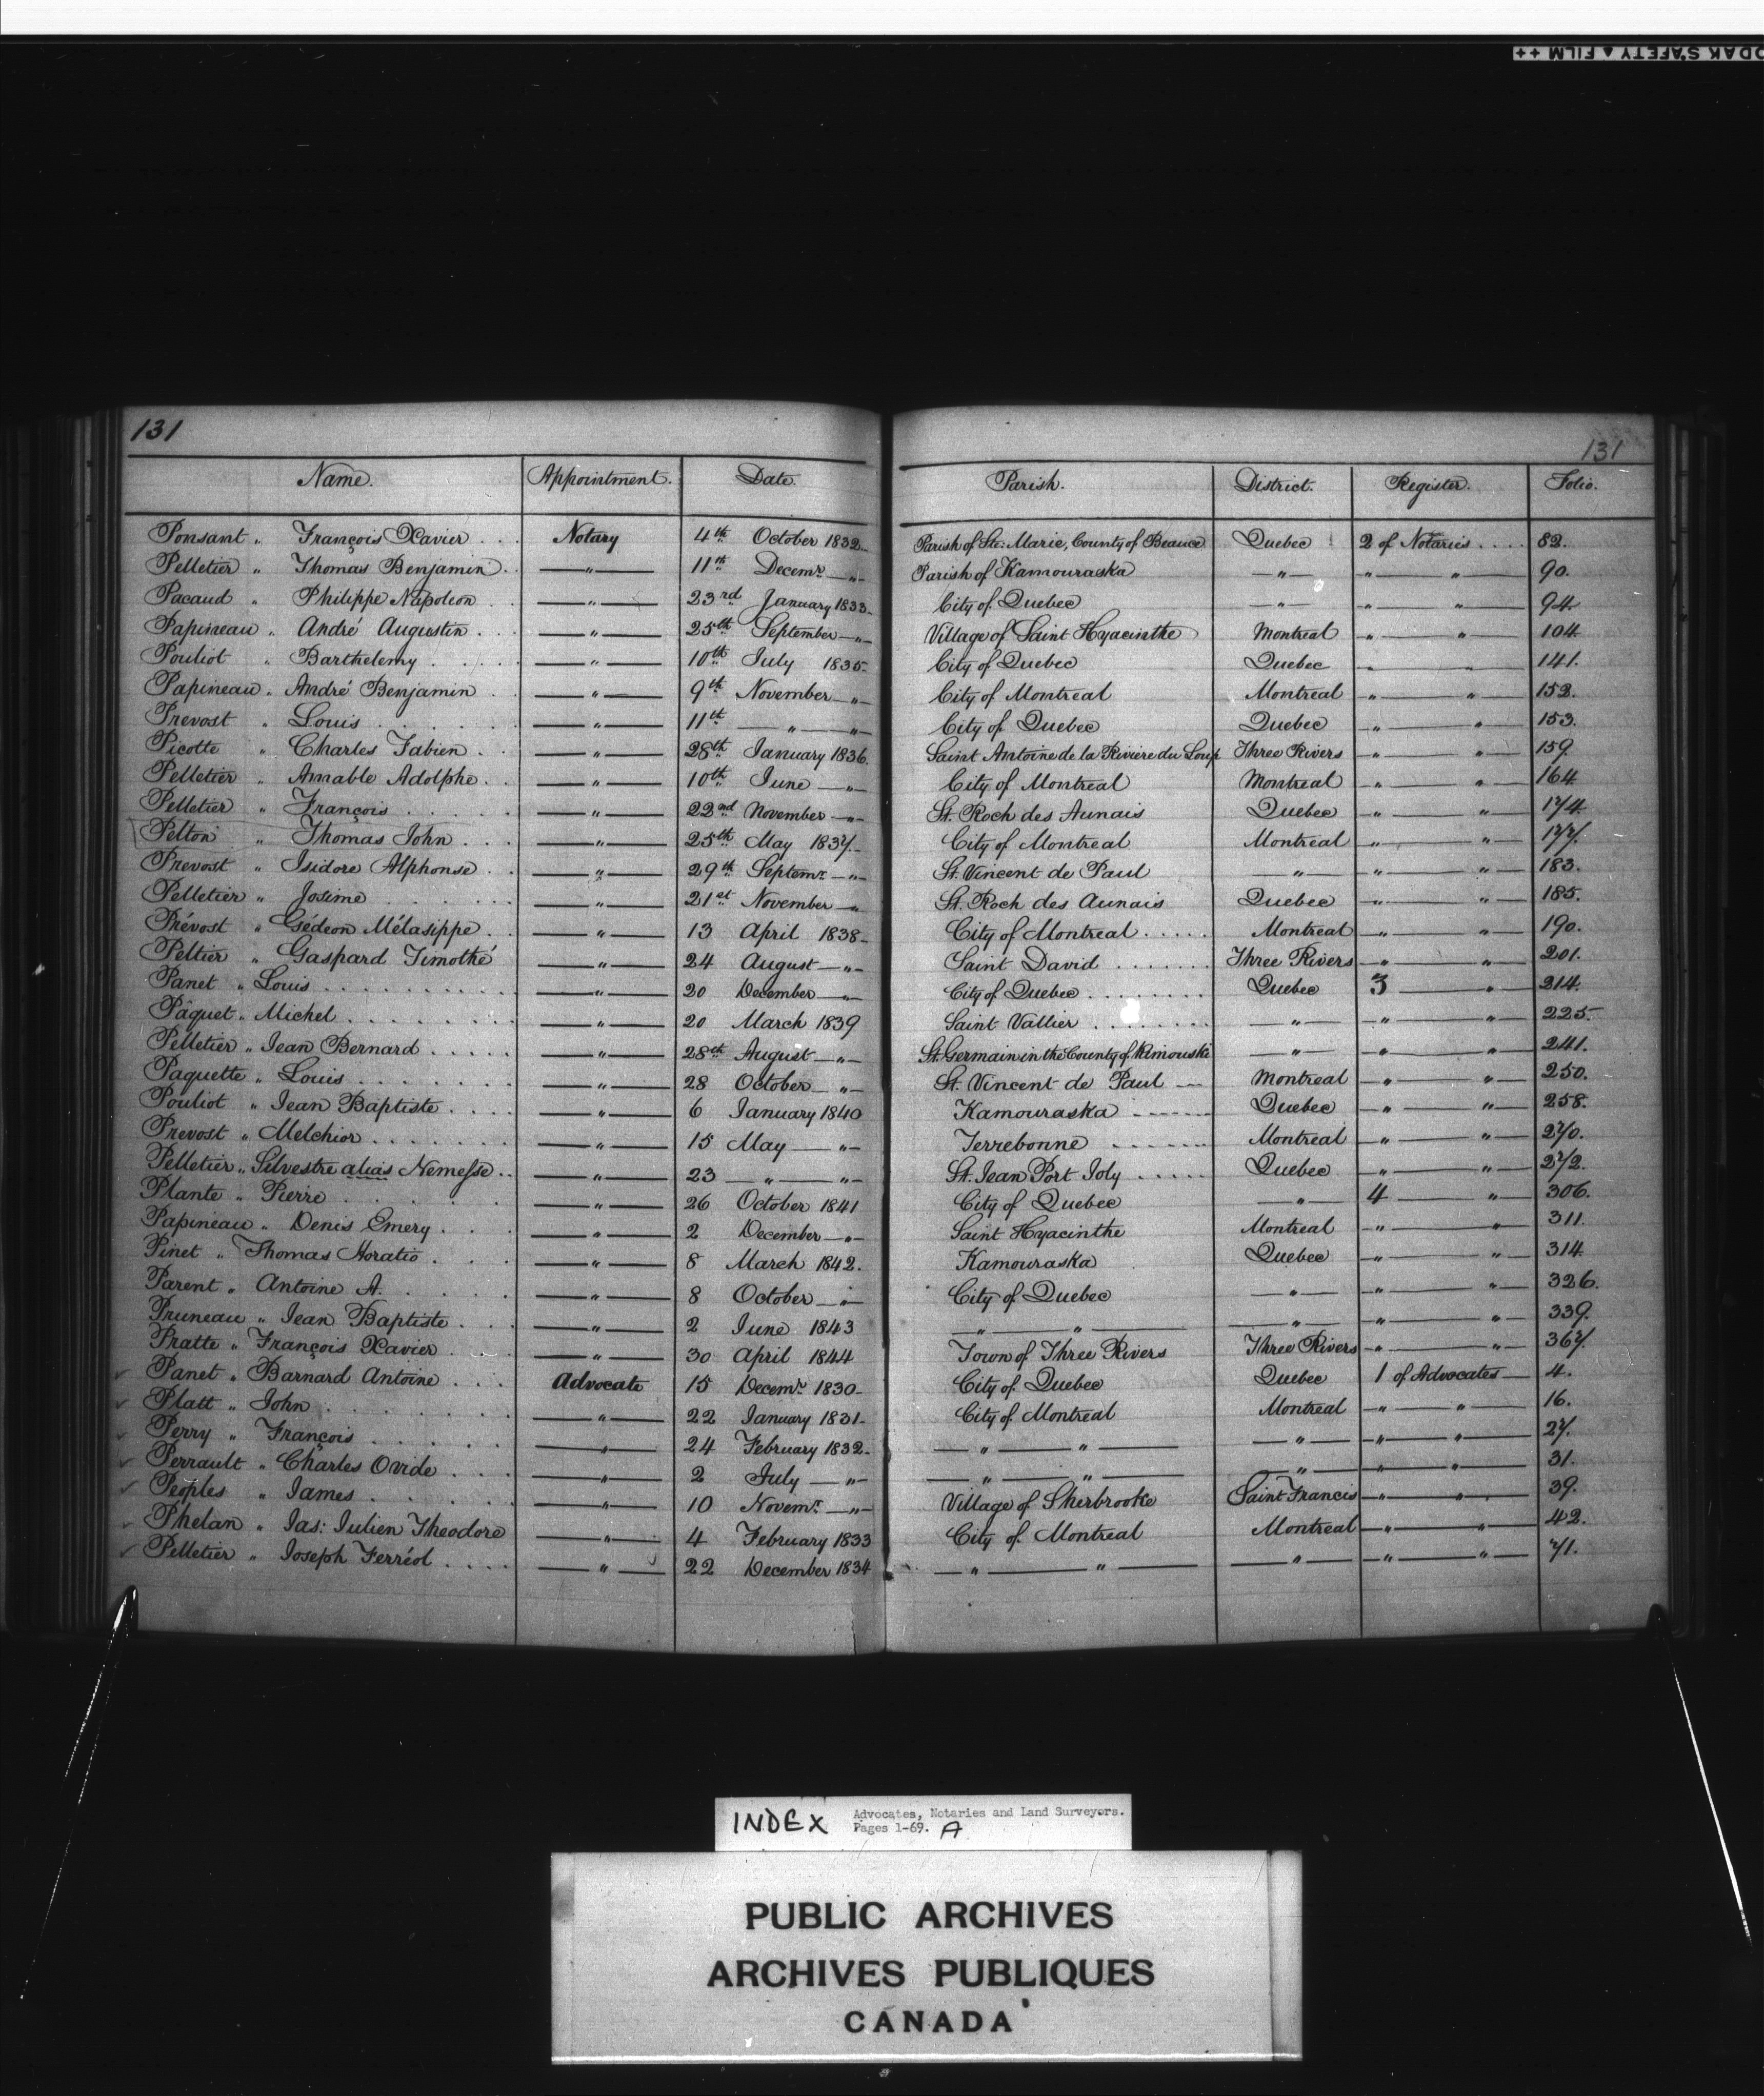 ODAK SAFETY ▲ FILM ++
131
131
Name. Appointment. Date. Parish. District. Register. Folio.
Ponsant „ François Xavier . . . Notary 4th October 1832 Parish of Ste: Marie, County of Beauce Quebec 2 of Notaries . . . . 82.
Pelletier „ Thomas Benjamin . — „ — 11th Decemr. — „ — Parish of Kamouraska — „ — „ — „ — 90.
Pacaud „ Philippe Napoleon . . — „ — 23rd January 1833 City of Quebec — „ — „ — „ — 94.
Papineau „ André Augustin . . . — „ — 25th September — „ — Village of Saint Hyacinthe Montreal „ — „ — 104
Pouliot „ Barthelemy . . . . — „ — 10th July 1835 City of Quebec Quebec „ — „ — 141.
Papineau „ André Benjamin . . — „ — 9th November — „ — City of Montreal Montreal „ — „ — 152.
Prevost „ Louis . . . . . . — „ — 11th — „ — „ — City of Quebec Quebec „ — „ — 153.
Picotte „ Charles Fabien . . — „ — 28th January 1836. Saint Antoine de la Riviere du Loup Three Rivers „ — „ — 159.
Pelletier „ Amable Adolphe . . — „ — 10th June — „ — City of Montreal Montreal „ — „ — 164
Pelletier „ François . . . . . — „ — 22nd November — „ — St. Roch des Aunais Quebec „ — „ — 174.
Pelton „ Thomas John . . . — „ — 25th May 1837 City of Montreal Montreal „ — „ — 177.
Prevost „ Isidore Alphonse . . — „ — 29th Septemr. — „ — St. Vincent de Paul — „ — „ — „ — 183.
Pelletier „ Josime . . . . . — „ — 21st November — „ — St. Roch des Aunais Quebec „ — „ — 185.
Prévost „ Gédeon Mélasippe . . — „ — 13 April 1838 City of Montreal . . . . . Montreal „ — „ — 190.
Peltier „ Gaspard Timothé — „ — 24 August — „ — Saint David . . . . . . . Three Rivers „ — „ — 201.
Panet „ Louis . . . . . . . . . — „ — 20 December — „ — City of Quebec . . . . . . . . Quebec 3 — „ — 214.
Pâquet „ Michel . . . . . . . — „ — 20 March 1839 Saint Vallier . . . . . . . — „ — „ — „ — 225.
Pélletier „ Jean Bernard . . . . . — „ — 28th August — „ — St. Germain in the County of Rimouski — „ — „ — „ — 241.
Paquette „ Louis . . . . . . . — „ — 28 October — „ — St. Vincent de Paul — Montreal „ — „ — 250.
Pouliot „ Jean Baptiste . . . . — „ — 6 January 1840 Kamouraska . . . . . . Quebec „ — „ — 258.
Prevost „ Melchior . . . . . . . — „ — 15 May — „ — Terrebonne . . . . . . Montreal „ — „ — 270.
Pelletier „ Silvestre alias Nemesse . . — „ — 23 — „ — „ — St. Jean Port Joly . . . . . Quebec „ — „ — 272.
Plante „ Pierre . . . . . — „ — 26 October 1841 City of Quebec — „ — 4 — „ — 306.
Papineau „ Denis Emery . . . — „ — 2 December — „ — Saint Hyacinthe Montreal „ — „ — 311.
Pinet „ Thomas Horatio . . . — „ — 8 March 1842. Kamouraska Quebec „ — „ — 314
Parent „ Antoine A. . . . . — „ — 8 October — „ — City of Quebec — „ — „ — „ — 326.
Pruneau „ Jean Baptiste . . . — „ — 2 June 1843 — „ — „ — — „ — „ — „ — 339.
Pratte „ François Xavier . . . — „ — 30 April 1844 Town of Three Rivers Three Rivers „ — „ — 367.
✓ Panet „ Barnard Antoine . . . Advocate 15 Decemr. 1830 City of Quebec Quebec 1 of Advocates — 4.
✓ Platt „ John . . . . . . . — „ — 22 January 1831 City of Montreal Montreal „ — „ — 16.
✓ Perry „ François . . . . . — „ — 24 February 1832 — „ — „ — — „ — „ — „ — 27.
✓ Perrault „ Charles Ovide . . . — „ — 2 July — „ — — „ — „ — — „ — „ — „ — 31.
✓ Peoples „ James . . . . . — „ — 10 Novemr. — „ — Village of Sherbrooke Saint Francis „ — „ — 39.
✓ Phelan „ Jas: Julien Theodore — „ — 4 February 1833 City of Montreal Montreal „ — „ — 42.
✓ Pelletier „ Joseph Ferréol . . . . — „ — 22 December 1834 — „ — „ — — „ — „ — „ — 71.
INDEX Advocates, Notaries and Land Surveyors.
Pages 1-69. A
PUBLIC ARCHIVES
ARCHIVES PUBLIQUES
CANADA